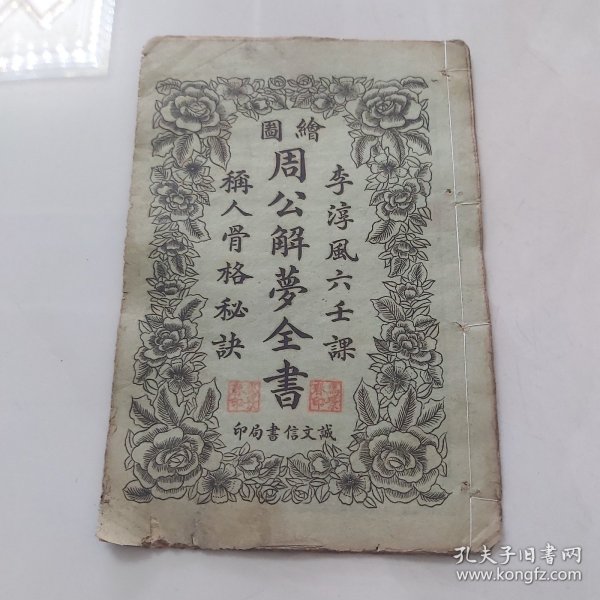 繪圖
李淳風六壬課
周公解夢全書
稱人骨格秘訣
誠文信書局印
孔夫子旧书网
www.kongfz.com